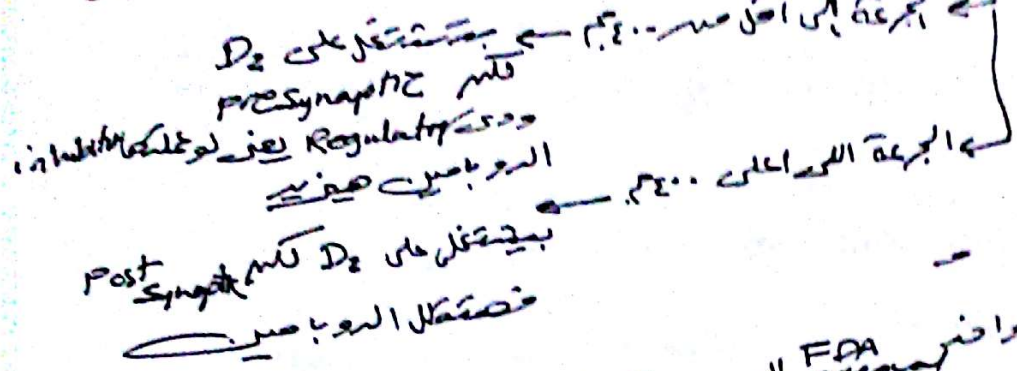 الجرعة اللي اقل من ٤٠٠ مج ← بتشتغل على D2
اللي presynaptic
ودى Regulator يعنى لو عملتله inhibition
الدوبامين هيزيد
الجرعة اللى اعلى ٤٠٠ مج ←
بيشتغل على D2 اللى Post synaptic
فهتقلل الدوبامين
FDA